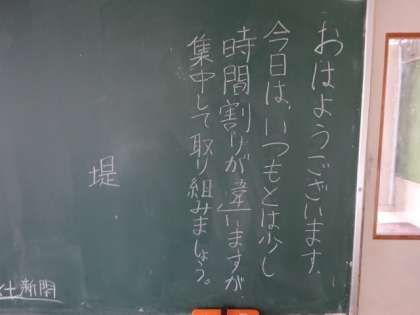 おはようございます。
今日は、いつもとは少し
時間割りが違いますが、
集中して取り組みましょう。
堤
新聞